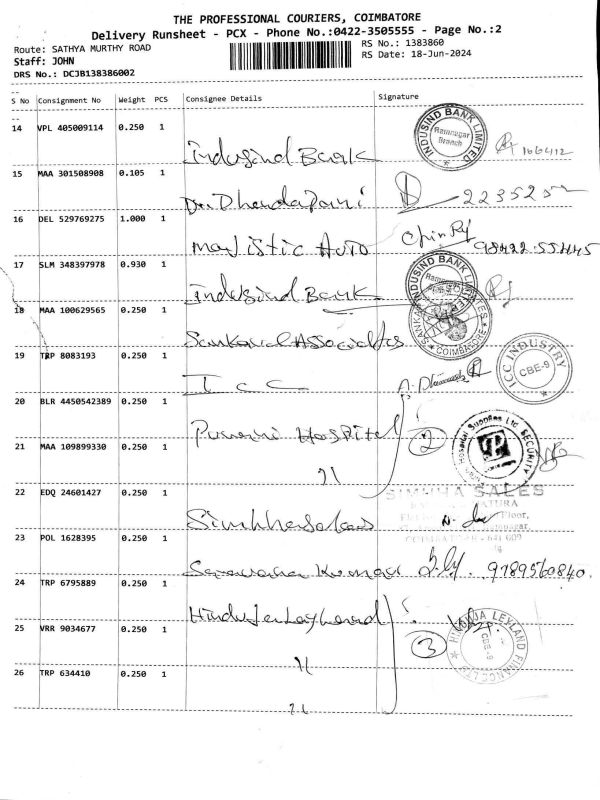 THE PROFESSIONAL COURIERS, COIMBATORE
Delivery Runsheet - PCX - Phone No.:0422-3505555 - Page No.:2
Route: SATHYA MURTHY ROAD
RS No.: 1383860
Staff: JOHN
RS Date: 18-Jun-2024
DRS No.: DCJB138386002
S No Consignment No Weight PCS Consignee Details Signature
14 VPL 405009114 0.250 1
Indusind Bank
INDUSIND BANK LIMITED Ramnagar Branch
166412
15 MAA 301508908 0.105 1
Dr. Dhandapani
16 DEL 529769275 1.000 1
majistic Auto
17 SLM 348397978 0.930 1
Indusind Bank
INDUSIND BANK LIMITED
18 MAA 100629565 0.250 1
Associates
COIMBATORE
19 TRP 8083193 0.250 1
ICC
ICC INDUSTRY CBE-9
20 BLR 4450542389 0.250 1
Hospital
2
Hospital Supplies Ltd SECURITY
21 MAA 109899330 0.250 1
11
22 EDQ 24601427 0.250 1
SIMHHA SALES
Floor,
COIMBATORE - 641 009
23 POL 1628395 0.250 1
Saravana Kumar
9789560840
24 TRP 6795889 0.250 1
Hinduja Leyland
25 VRR 9034677 0.250 1
11
3
HINDUJA LEYLAND FINANCE LTD CBE-9
26 TRP 634410 0.250 1
11